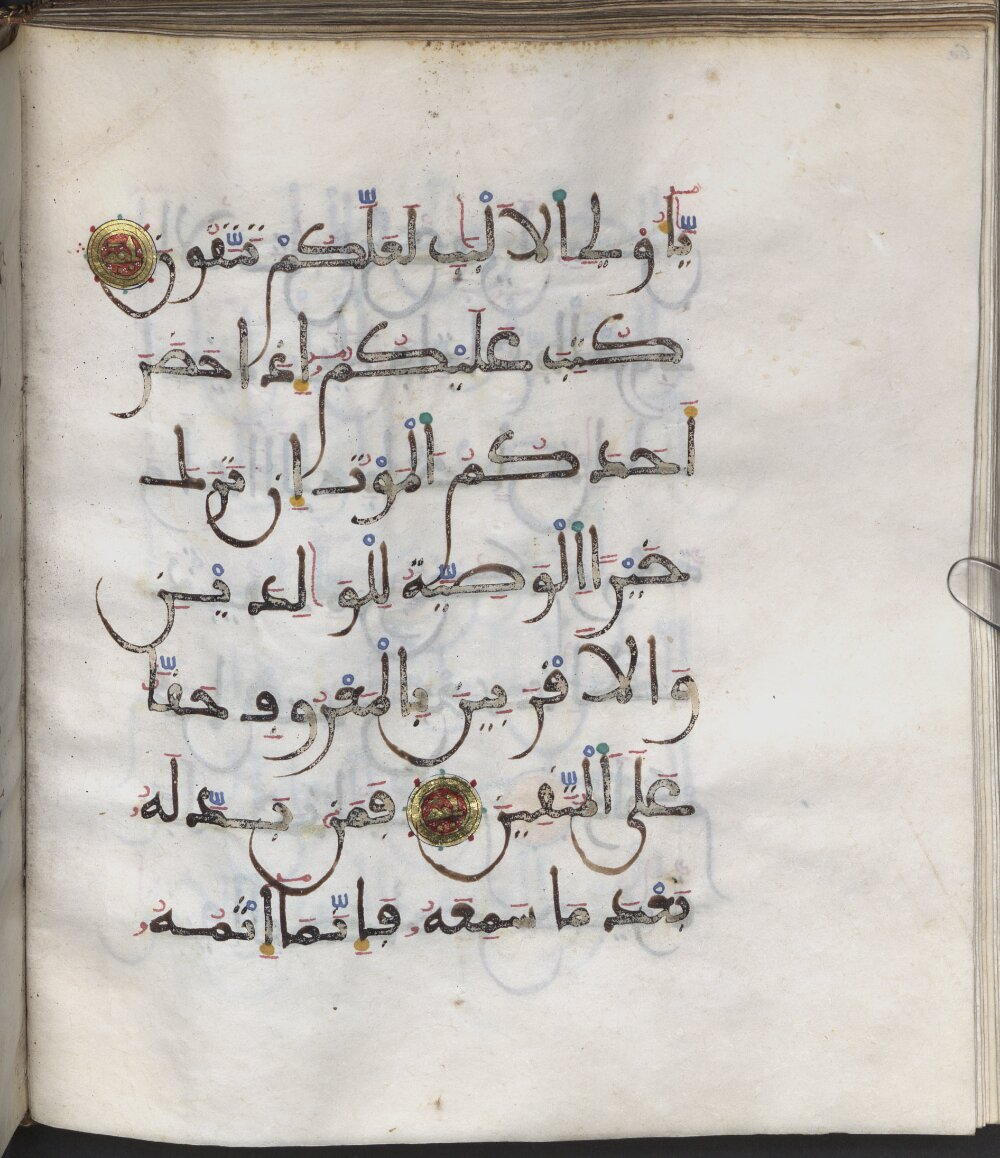 يَٰٓأُوْلِے اِ۬لَالْبَٰبِ لَعَلَّكُمْ تَتَّقُونَ
كُتِبَ عَلَيْكُمُ إِذَا حَضَرَ
أَحَدَكُمُ اُ۬لْمَوْتُ إِن تَرَكَ
خَيْراً اِ۬لْوَصِيَّةُ لِلْوَٰلِدَيْنِ
وَالَاقْرَبِينَ بِالْمَعْرُوفِ حَقّاً
عَلَي اَ۬لْمُتَّقِينَ فَمَنۢ بَدَّلَهُۥ
بَعْدَ مَا سَمِعَهُۥ فَإِنَّمَآ إِثْمُهُۥ